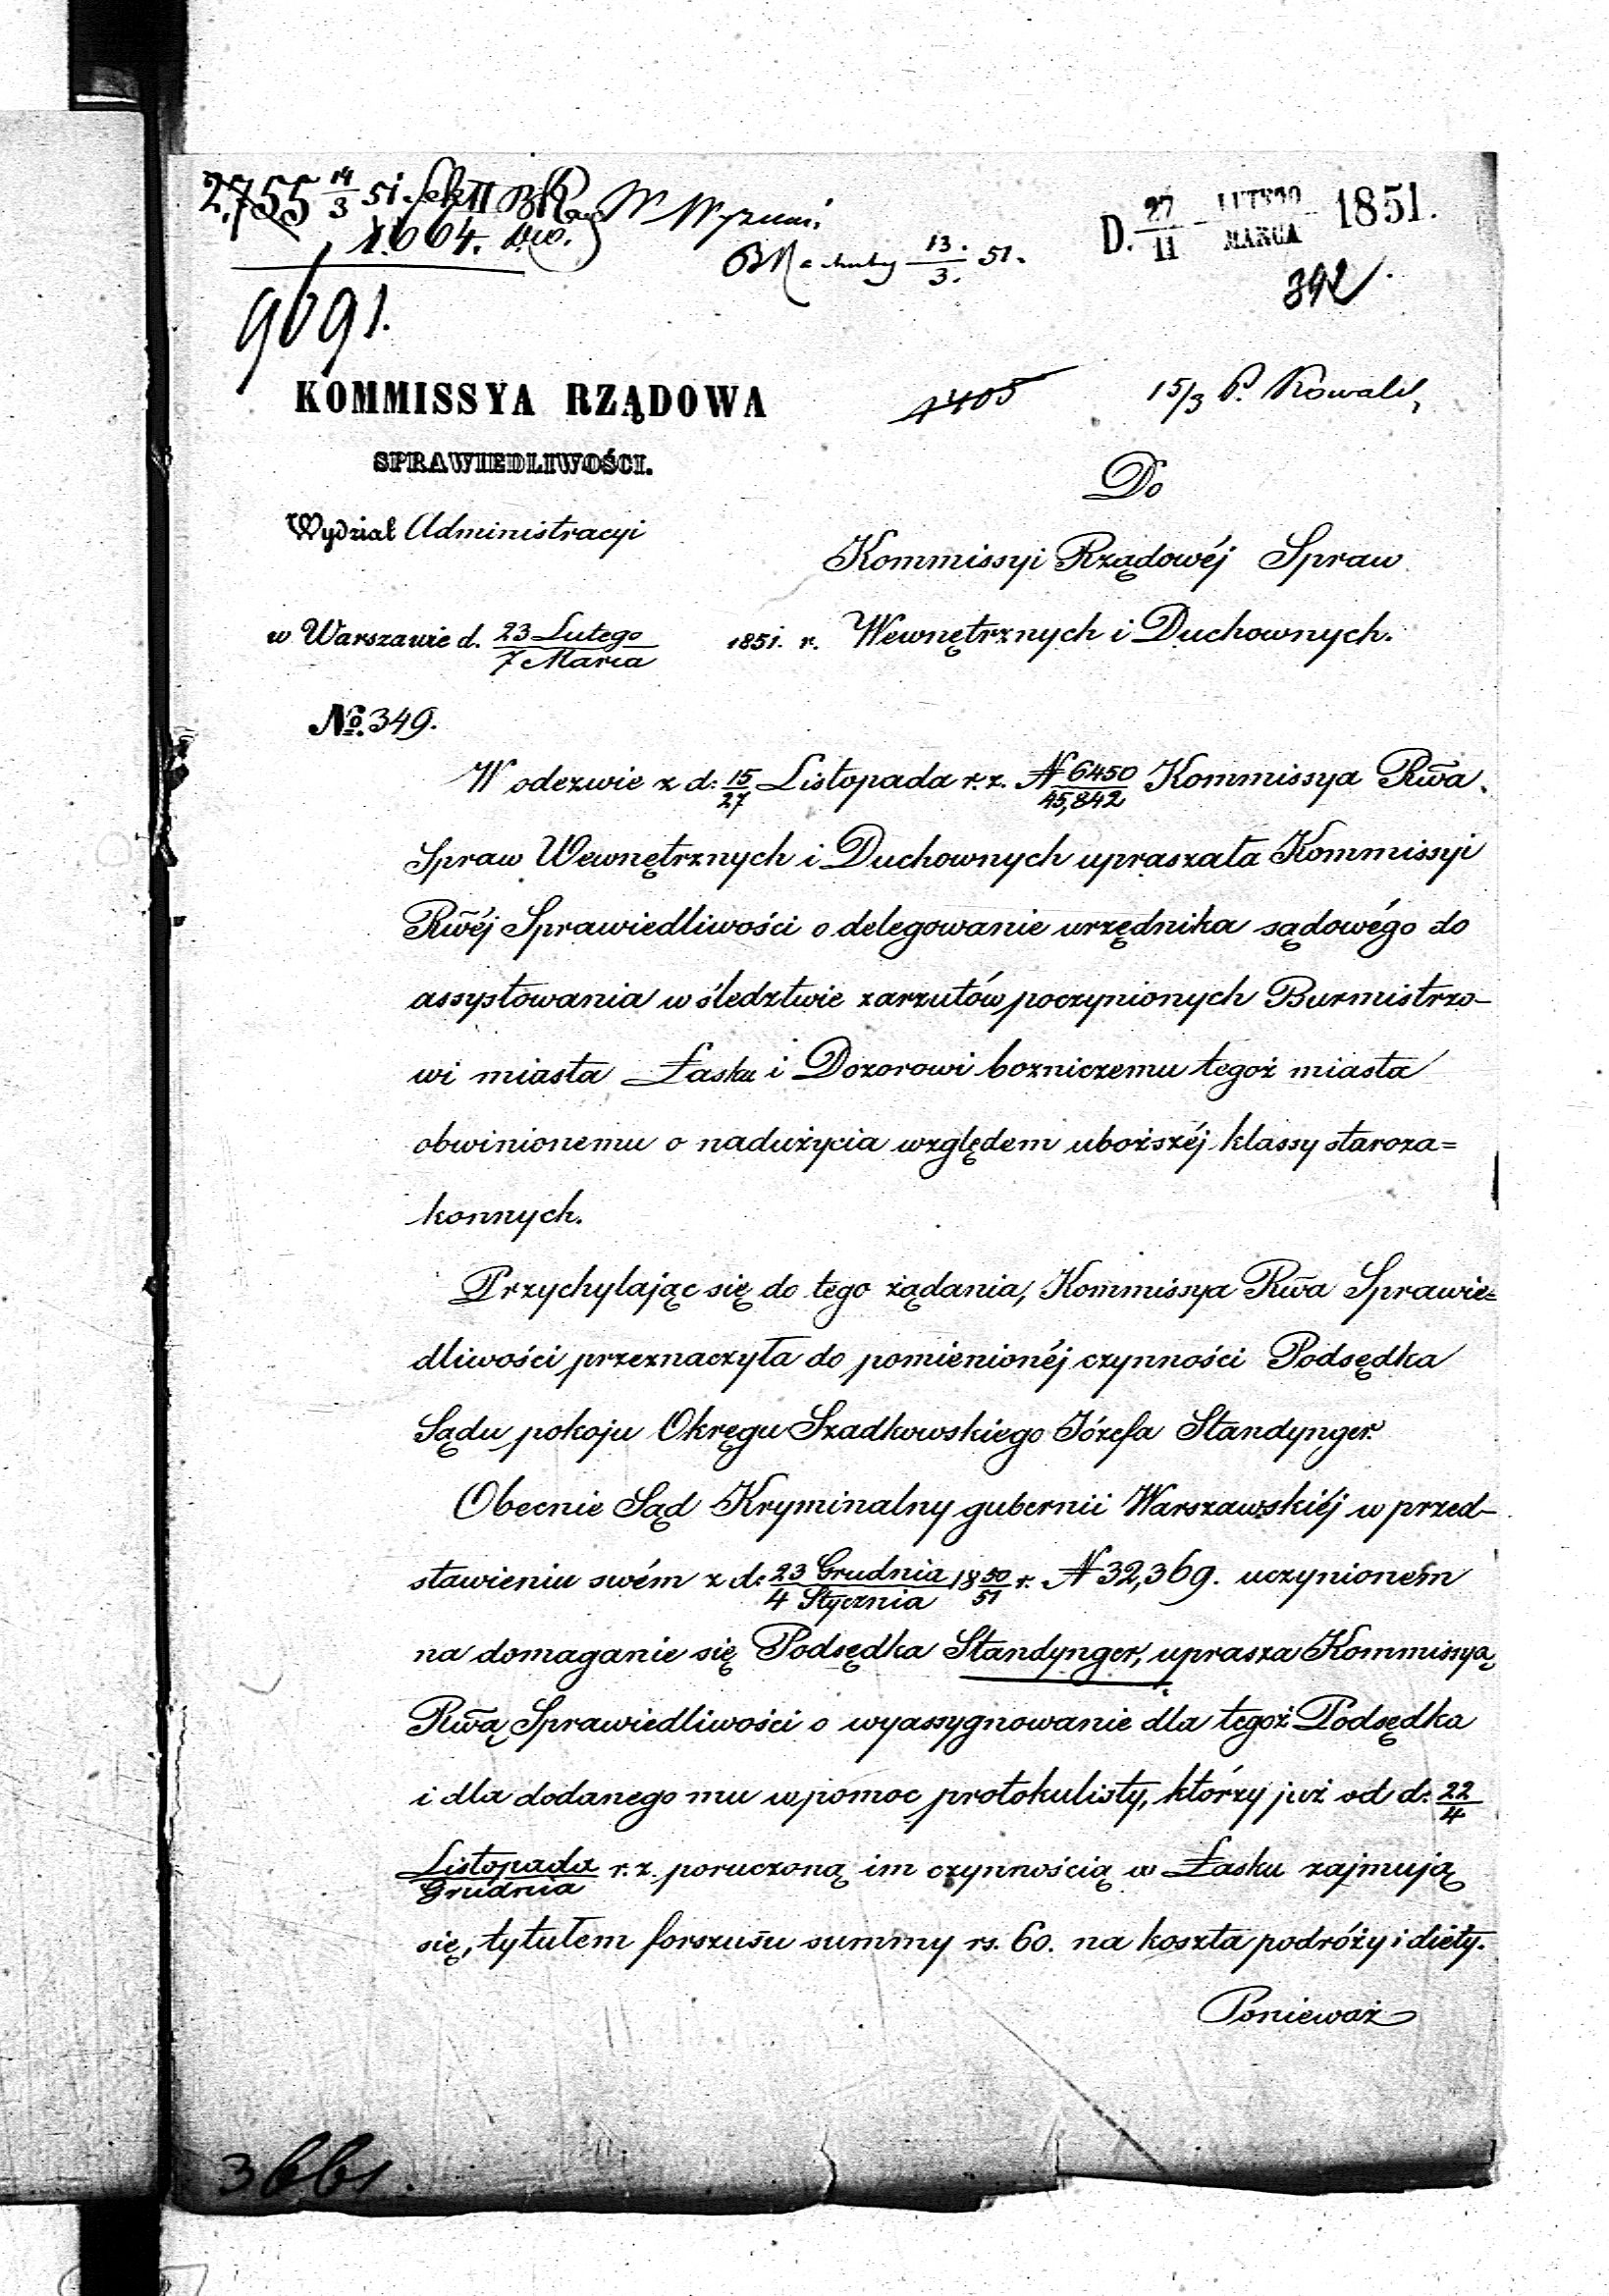 2,755 14/3 51. Sek II
1664.
W Wyznań.
13./3. 51.
D. 27/11 LUTEGO/MARCA 1851.
392.
9691.
KOMMISSYA RZĄDOWA
SPRAWIEDLIWOŚCI.
4405
15/3 P. Kowalś,
Wydział Administracyi
Do
Kommissyi Rządowéj Spraw
Wewnętrznych i Duchownych.
w Warszawie d. 23 Lutego/7 Marca 1851. r.
No. 349.
W odezwie z d: 15/27 Listopada r. z. N 6450/45,842 Kommissya Rwa.
Spraw Wewnętrznych i Duchownych upraszała Kommissyi
Rwéj Sprawiedliwości o delegowanie urzędnika sądowégo do
assystowania w śledztwie zarzutów poczynionych Burmistrzo-
wi miasta Łasku i Dozorowi bozniczemu tegoż miasta
obwinionemu o nadużycia względem uboższéj klassy staroza=
konnych.
Przychylając się do tego żądania, Kommissya Rwa Sprawie=
dliwości przeznaczyła do pomienionéj czynności Podsędka
Sądu pokoju Okręgu Szadkowskiego Józefa Standynger.
Obecnie Sąd Kryminalny gubernii Warszawskiéj w przed-
stawieniu swém z d: 23 Grudnia/4 Stycznia 1850/51 r. N 32,369. uczynioném
na domaganie się Podsędka Standynger, uprasza Kommissyą
Rwą Sprawiedliwości o wyassygnowanie dla tegoż Podsędka
i dla dodanego mu w pomoc protokulisty, którzy już od d: 22/4
Listopada/Grudnia r. z. poruczoną im czynnością w Łasku zajmują
się, tytułem forszusu summy rs. 60. na koszta podróży i diéty.
Ponieważ
3661.